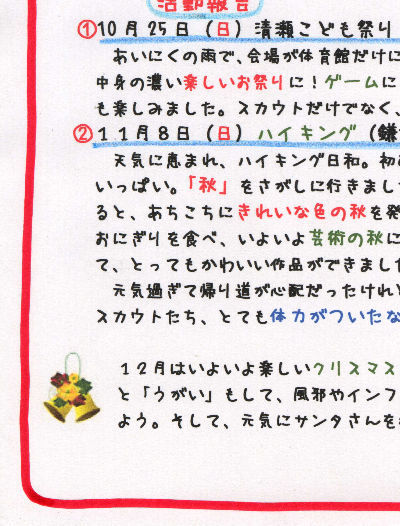 活動報告
①10月25日（日）清瀬こども祭り
あいにくの雨で、会場が体育館だけに
中身の濃い楽しいお祭りに！ゲームに
も楽しみました。スカウトだけでなく、
②11月8日（日）ハイキング（鎌
天気に恵まれ、ハイキング日和。初め
いっぱい。「秋」をさがしに行きまし
ると、あちこちにきれいな色の秋を発
おにぎりを食べ、いよいよ芸術の秋に
て、とってもかわいい作品ができました
元気過ぎて帰り道が心配だったけれど
スカウトたち、とても体力がついたな
12月はいよいよ楽しいクリスマス
と「うがい」もして、風邪やインフ
よう。そして、元気にサンタさんを